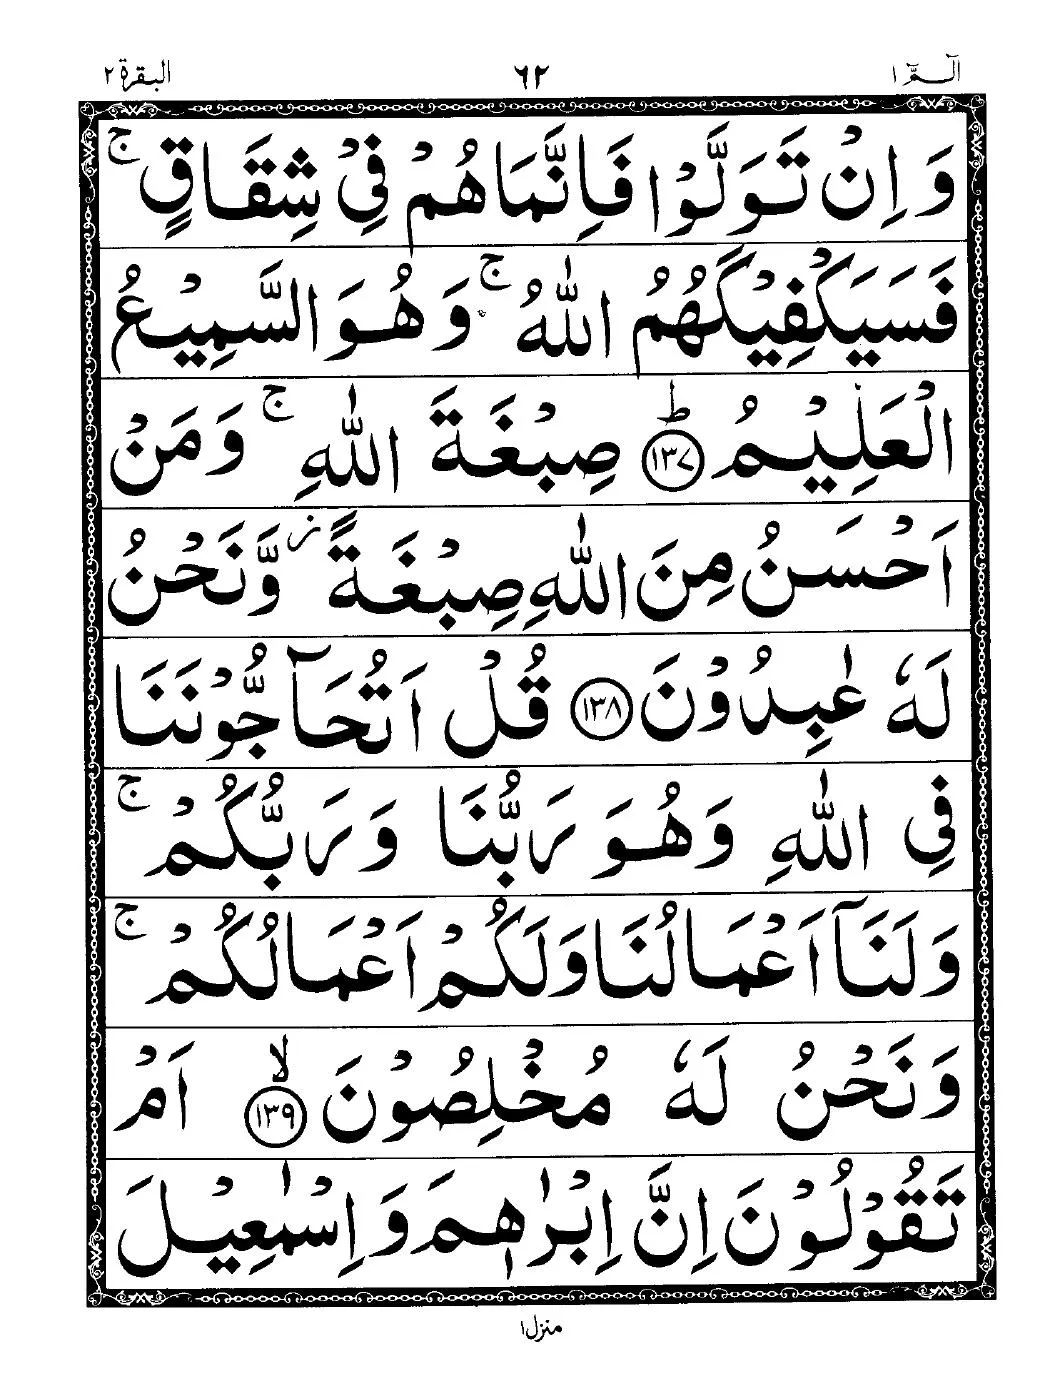 الٓـمّٓ ١ ٦٢ البقرة ٢
وَاِنْ تَوَلَّوْا فَاِنَّمَا هُمْ فِيْ شِقَاقٍ ۚ
فَسَيَكْفِيْكَهُمُ اللّٰهُ ۚ وَهُوَ السَّمِيْعُ
الْعَلِيْمُ ؕ ﴿۱۳۷﴾ صِبْغَةَ اللّٰهِ ۚ وَمَنْ
اَحْسَنُ مِنَ اللّٰهِ صِبْغَةً ؗ وَّنَحْنُ
لَهٗ عٰبِدُوْنَ ﴿۱۳۸﴾ قُلْ اَتُحَآجُّوْنَنَا
فِي اللّٰهِ وَهُوَ رَبُّنَا وَرَبُّكُمْ ۚ
وَلَنَآ اَعْمَالُنَا وَلَكُمْ اَعْمَالُكُمْ ۚ
وَنَحْنُ لَهٗ مُخْلِصُوْنَ ۙ ﴿۱۳۹﴾ اَمْ
تَقُوْلُوْنَ اِنَّ اِبْرٰهٖمَ وَاِسْمٰعِيْلَ
منزل ١